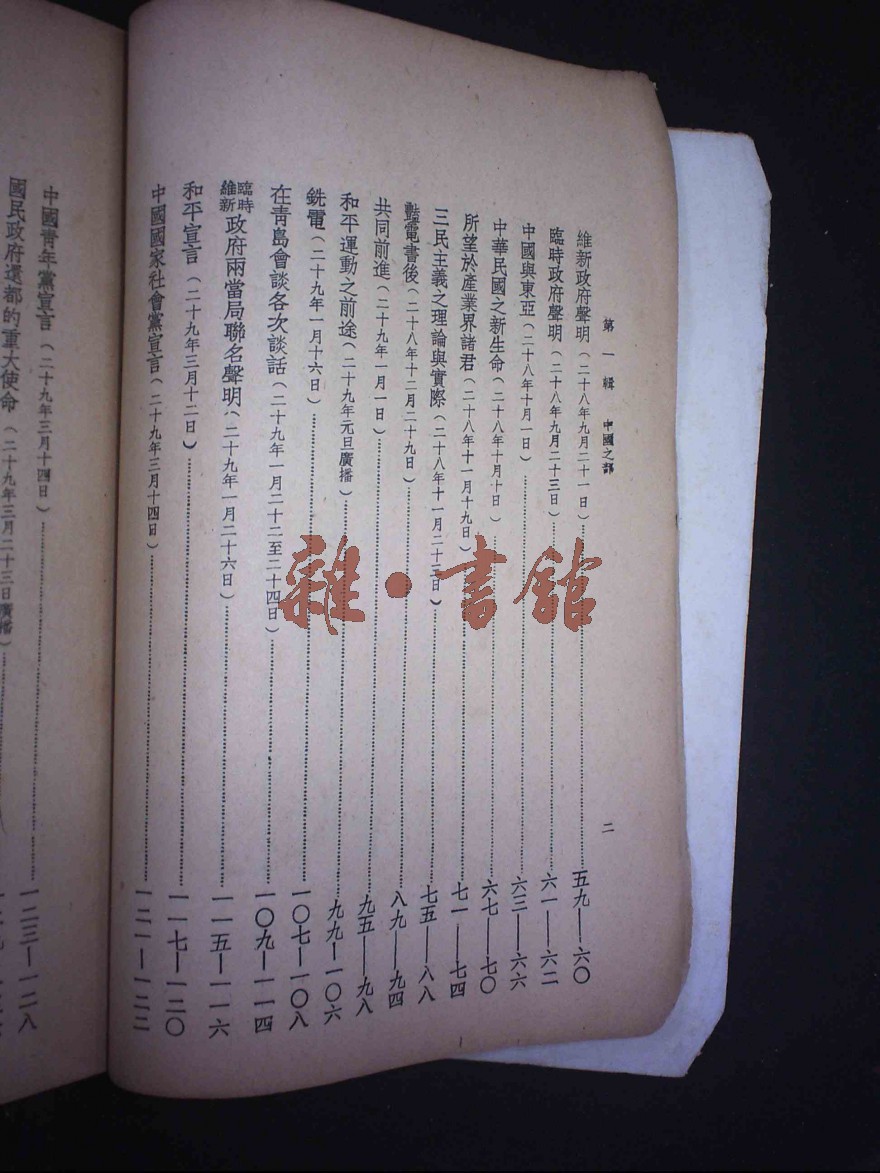 第一輯　中國之部　二
維新政府聲明（二十八年九月二十一日）……五九—六〇
臨時政府聲明（二十八年九月二十三日）……六一—六二
中國與東亞（二十八年十月一日）……六三—六六
中華民國之新生命（二十八年十月十日）……六七—七〇
所望於產業界諸君（二十八年十一月十九日）……七一—七四
三民主義之理論與實際（二十八年十一月二十三日）……七五—八八
豔電書後（二十八年十二月二十九日）……八九—九四
共同前進（二十九年一月一日）……九五—九八
和平運動之前途（二十九年元旦廣播）……九九—一〇六
銑電（二十九年一月十六日）……一〇七—一〇八
在靑島會談各次談話（二十九年一月二十二至二十四日）……一〇九—一一四
臨時維新政府兩當局聯名聲明（二十九年一月二十六日）……一一五—一一六
和平宣言（二十九年三月十二日）……一一七—一二〇
中國國家社會黨宣言（二十九年三月十四日）……一二一—一二二
中國靑年黨宣言（二十九年三月十四日）……一二三—一二八
國民政府還都的重大使命（二十九年三月二十三日廣播）……
雜·書館